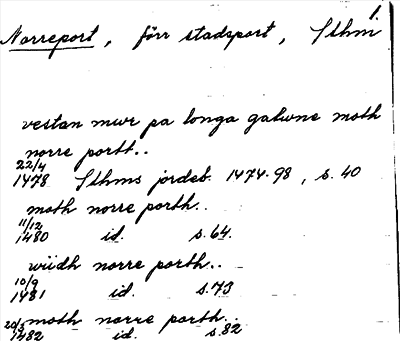 1
Norreport, förr stadsport, Sthm
vestan mwr pa longa gatwne moth
norre portt..
22/4
1478 Sthms jordeb. 1474-98, s. 40
moth norre porth..
11/12
1480 id. s. 64.
wiidh norre porth..
10/9
1481 id. s. 73
moth norre porth..
20/3
1482 id. s. 82